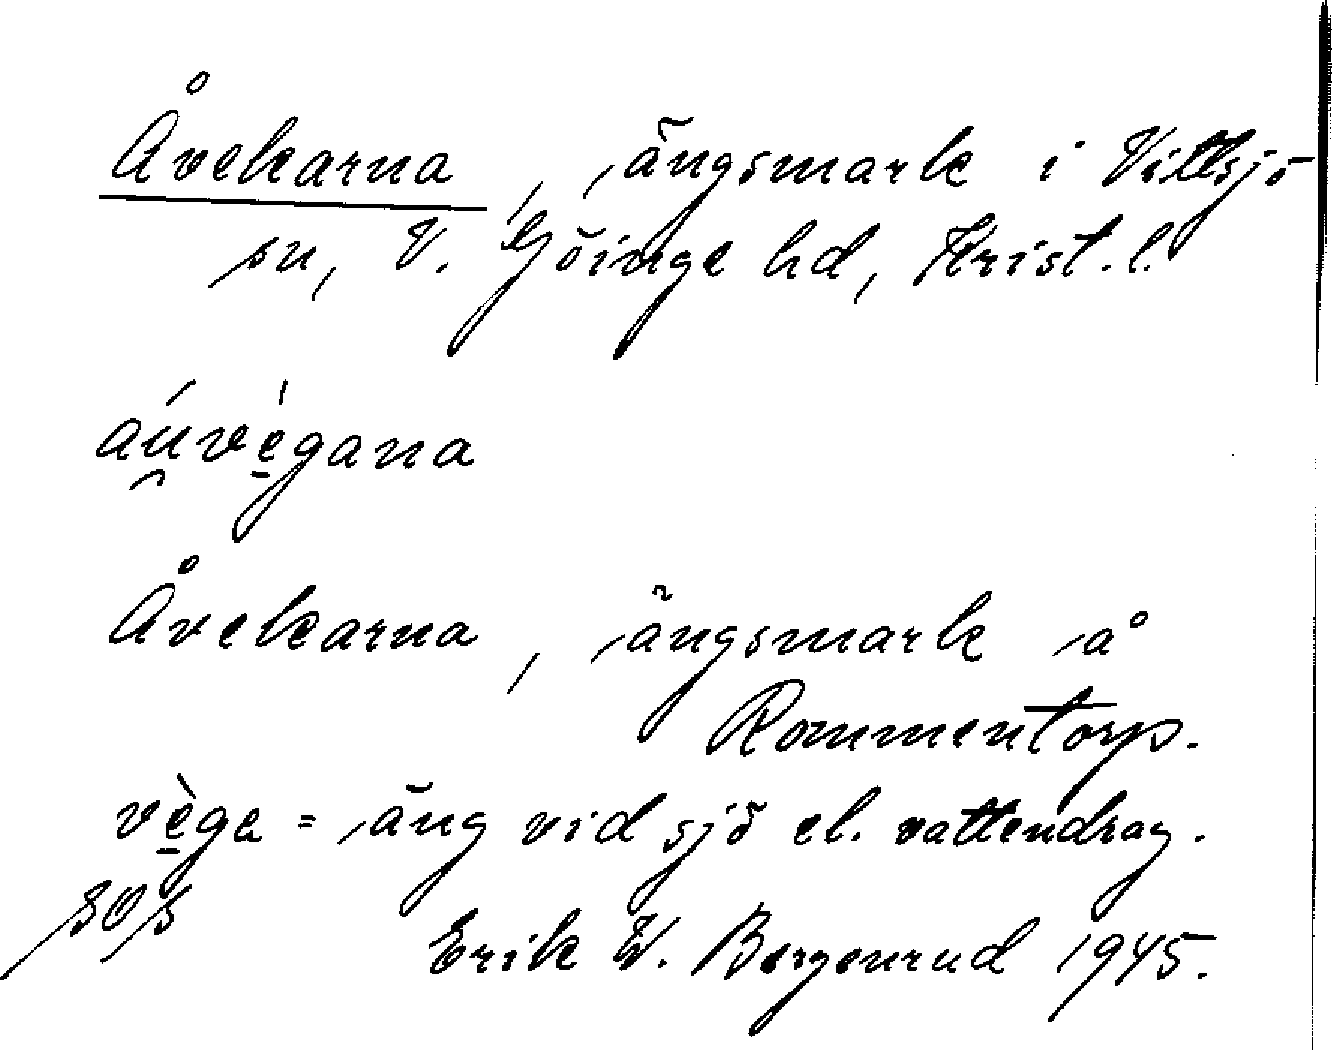 Åvekarna, ängsmark i Vittsjö
sn, V. Göinge hd, Krist. l.
áu̯vègana
Åvekarna, ängsmark å
Rommentorp.
vèga = äng vid sjö el. vattendrag.
Erik W. Bergenrud 1945.